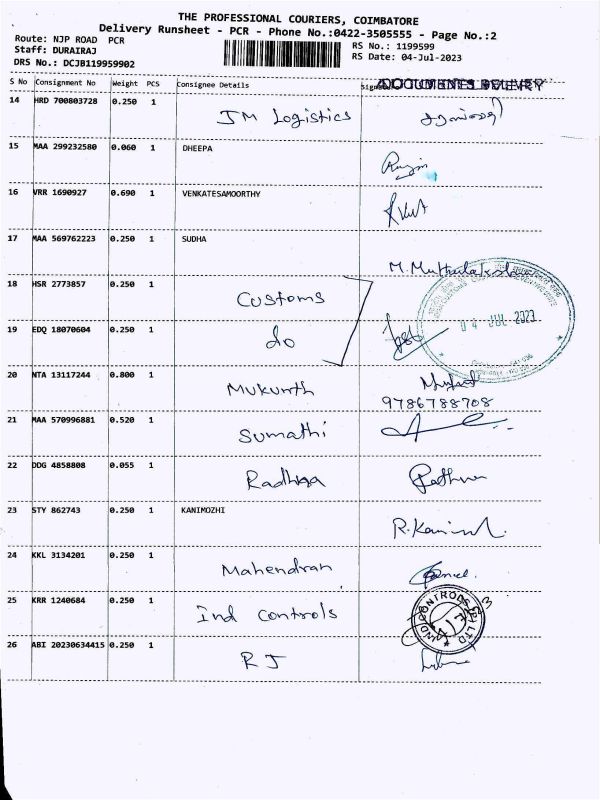 THE PROFESSIONAL COURIERS, COIMBATORE
Delivery Runsheet - PCR - Phone No.:0422-3505555 - Page No.:2
Route: NJP ROAD PCR
RS No.: 1199599
Staff: DURAIRAJ
RS Date: 04-Jul-2023
DRS No.: DCJB119959902
S No Consignment No Weight PCS Consignee Details
14 HRD 700803728 0.250 1 JM Logistics
15 MAA 299232580 0.060 1 DHEEPA
16 VRR 1690927 0.690 1 VENKATESAMOORTHY
17 MAA 569762223 0.250 1 SUDHA
18 HSR 2773857 0.250 1 Customs
19 EDQ 18070604 0.250 1 do
04 JUL 2023
20 NTA 13117244 0.800 1 Mukunth
9786788708
21 MAA 570996881 0.520 1 Sumathi
22 DDG 4858808 0.055 1 Radhika
23 STY 862743 0.250 1 KANIMOZHI
24 KKL 3134201 0.250 1 Mahendran
25 KRR 1240684 0.250 1 Ind Controls
26 ABI 20230634415 0.250 1 RJ